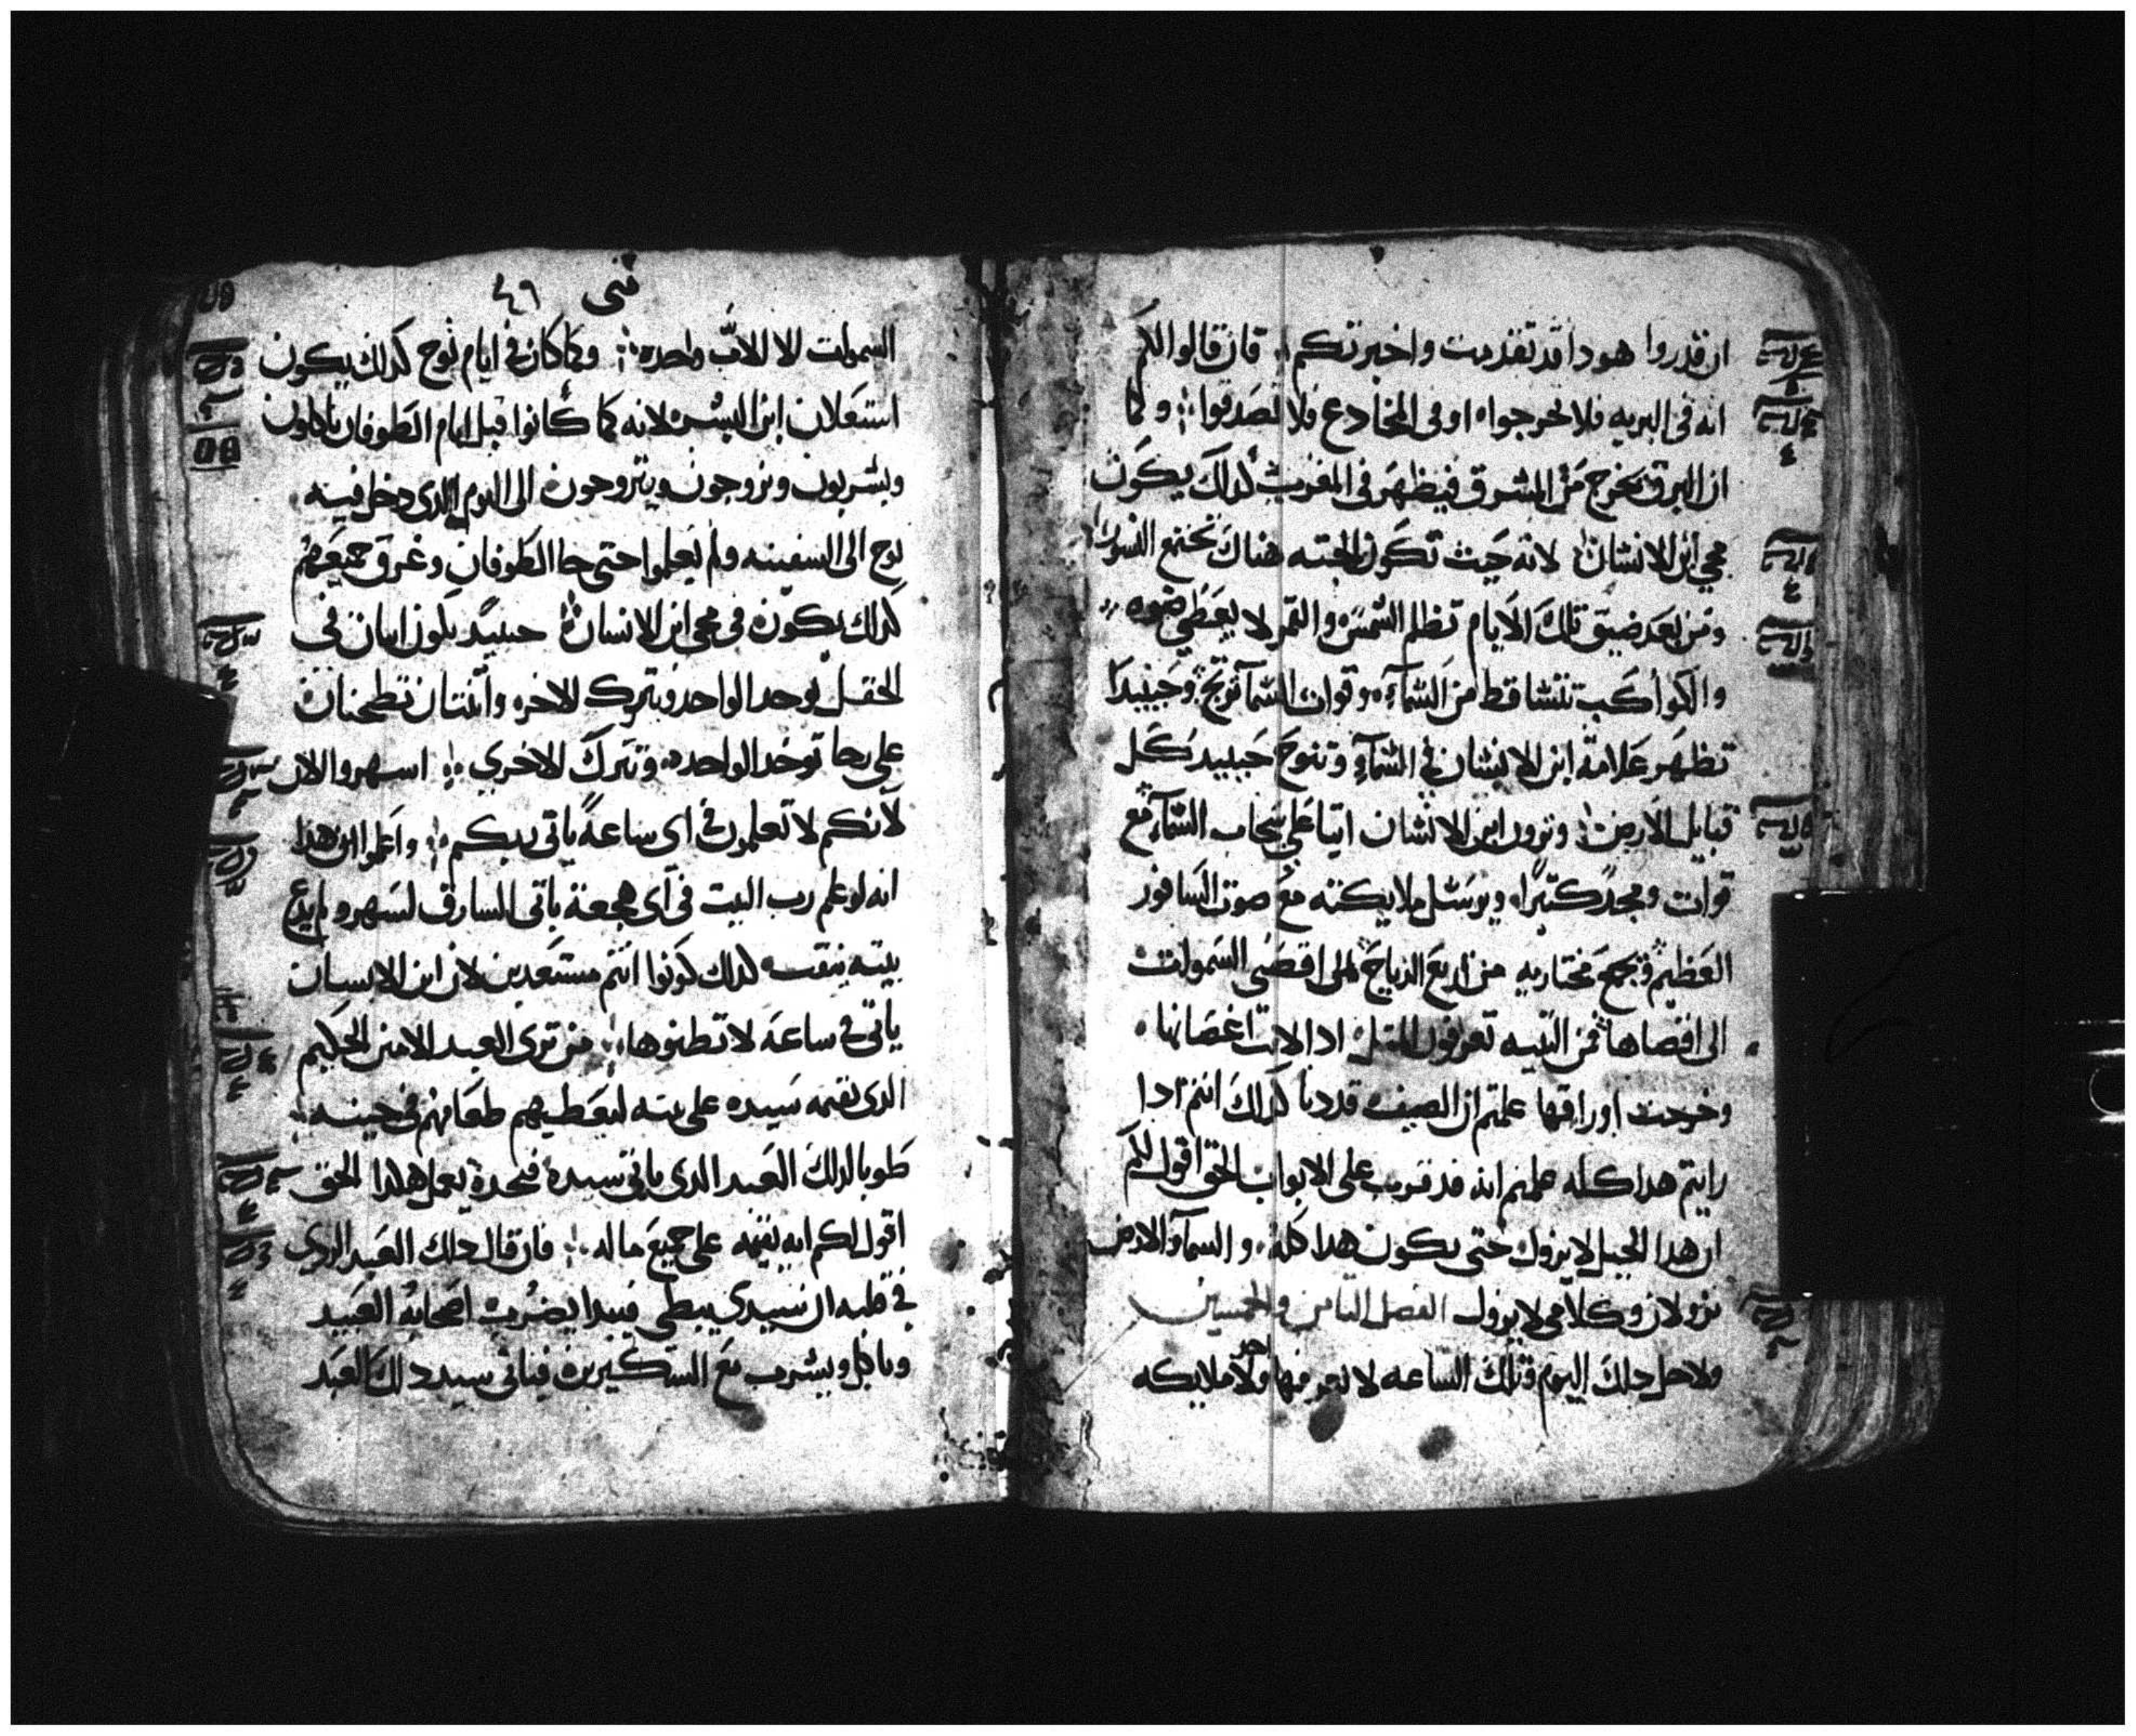 ان قدروا هودا قد تقدمت واخبرتكم فان قالوا لكم
انه فى البريه فلا تخرجوا او فى المخادع فلا تصدقوا وكما
ان البرق يخرج من المشرق فيظهر فى المغرب كدلك يكون
مجي ابن الانسان لانه حيث تكون الجته هناك تجتمع النسور
ومن بعد ضيق تلك الايام تظلم الشمس والقمر لا يعطي ضوه
والكواكب تتساقط من السماء وقوات السما ترتج وحينيدا
تظهر علامة ابن الانسان في السماء وتنوح حينيد كل
قبايل الارض وترون ابن الانسان اتيا على سحاب السماء مع
قوات ومجد كتيرا ويرسل ملايكته مع صوت السافور
العظيم وتجمع مختاريه من اربع الرياح من اقصى السموات
الى اقصاها فمن التينه تعرفون المتل ادا لانت اغصانها
وخرجت اوراقها علمتم ان الصيف قد دنا كدلك انتم ادا
رايتم هدا كله علمتم انه قد قرب على الابواب الحق اقول لكم
ان هدا الجيل لا يزول حتى يكون هدا كله والسما والارض
تزولان وكلامى لا يزول الفصل التامن والخمسين
ولاجل دلك اليوم وتلك الساعه لا يعرفها احد ولا ملايكه
متى ٤٦
السموات الا الاب واحده وكما كان فى ايام نوح كدلك يكون
استعلان ابن البشر لانه كما كانوا قبل ايام الطوفان ياكلون
ويشربون وتزوجون ويتزوجون الى اليوم الدى دخل فيه
نوح الى السفينه ولم يعلموا حتى جا الطوفان وغرق جميعهم
كدلك يكون فى مجى ابن الانسان حينيد يكون اتنان فى
الحقل يوخد الواحد ويترك الاخر واتنتان تطحنان
على رحا توخد الواحده وتترك الاخرى اسهروا الان
لانكم لا تعلمون فى اى ساعة ياتى ربكم واعلموا ان هدا
انه لو علم رب البيت فى اى هجعة ياتى السارق لسهر ولم يدع
بيته ينقب كدلك كونوا انتم مستعدين لان ابن الانسان
ياتى فى ساعه لا تطنوها من ترى العبد الامين الحكيم
الدى يقيمه سيده على بيته ليعطيهم طعامهم فى حينه
طوبا لدلك العبد الدى ياتى سيده فيجده يعمل هكدا الحق
اقول لكم انه يقيمه على جميع ماله فان قال دلك العبد الردى
فى قلبه ان سيدى يبطى فيبدا يضرب اصحابه العبيد
وياكل ويشرب مع السكيرين فياتى سيد دلك العبد